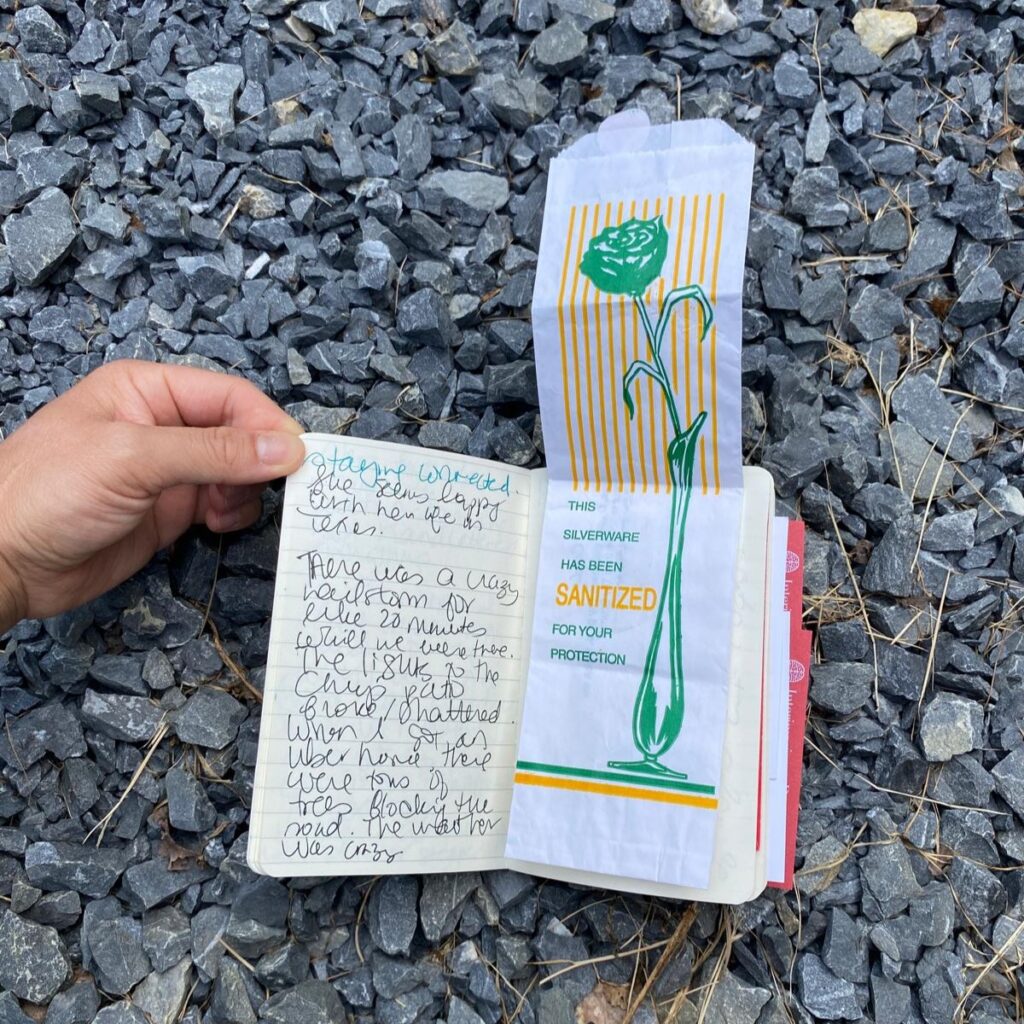 staying connected.
She seems happy
with her life in
Texas.
There was a crazy
hailstorm for
like 20 minutes
while we were there.
The lights to the
patio
broke/shattered.
When I got an
Uber home there
were tons of
trees blocking the
road. The weather
was crazy
THIS
SILVERWARE
HAS BEEN
SANITIZED
FOR YOUR
PROTECTION